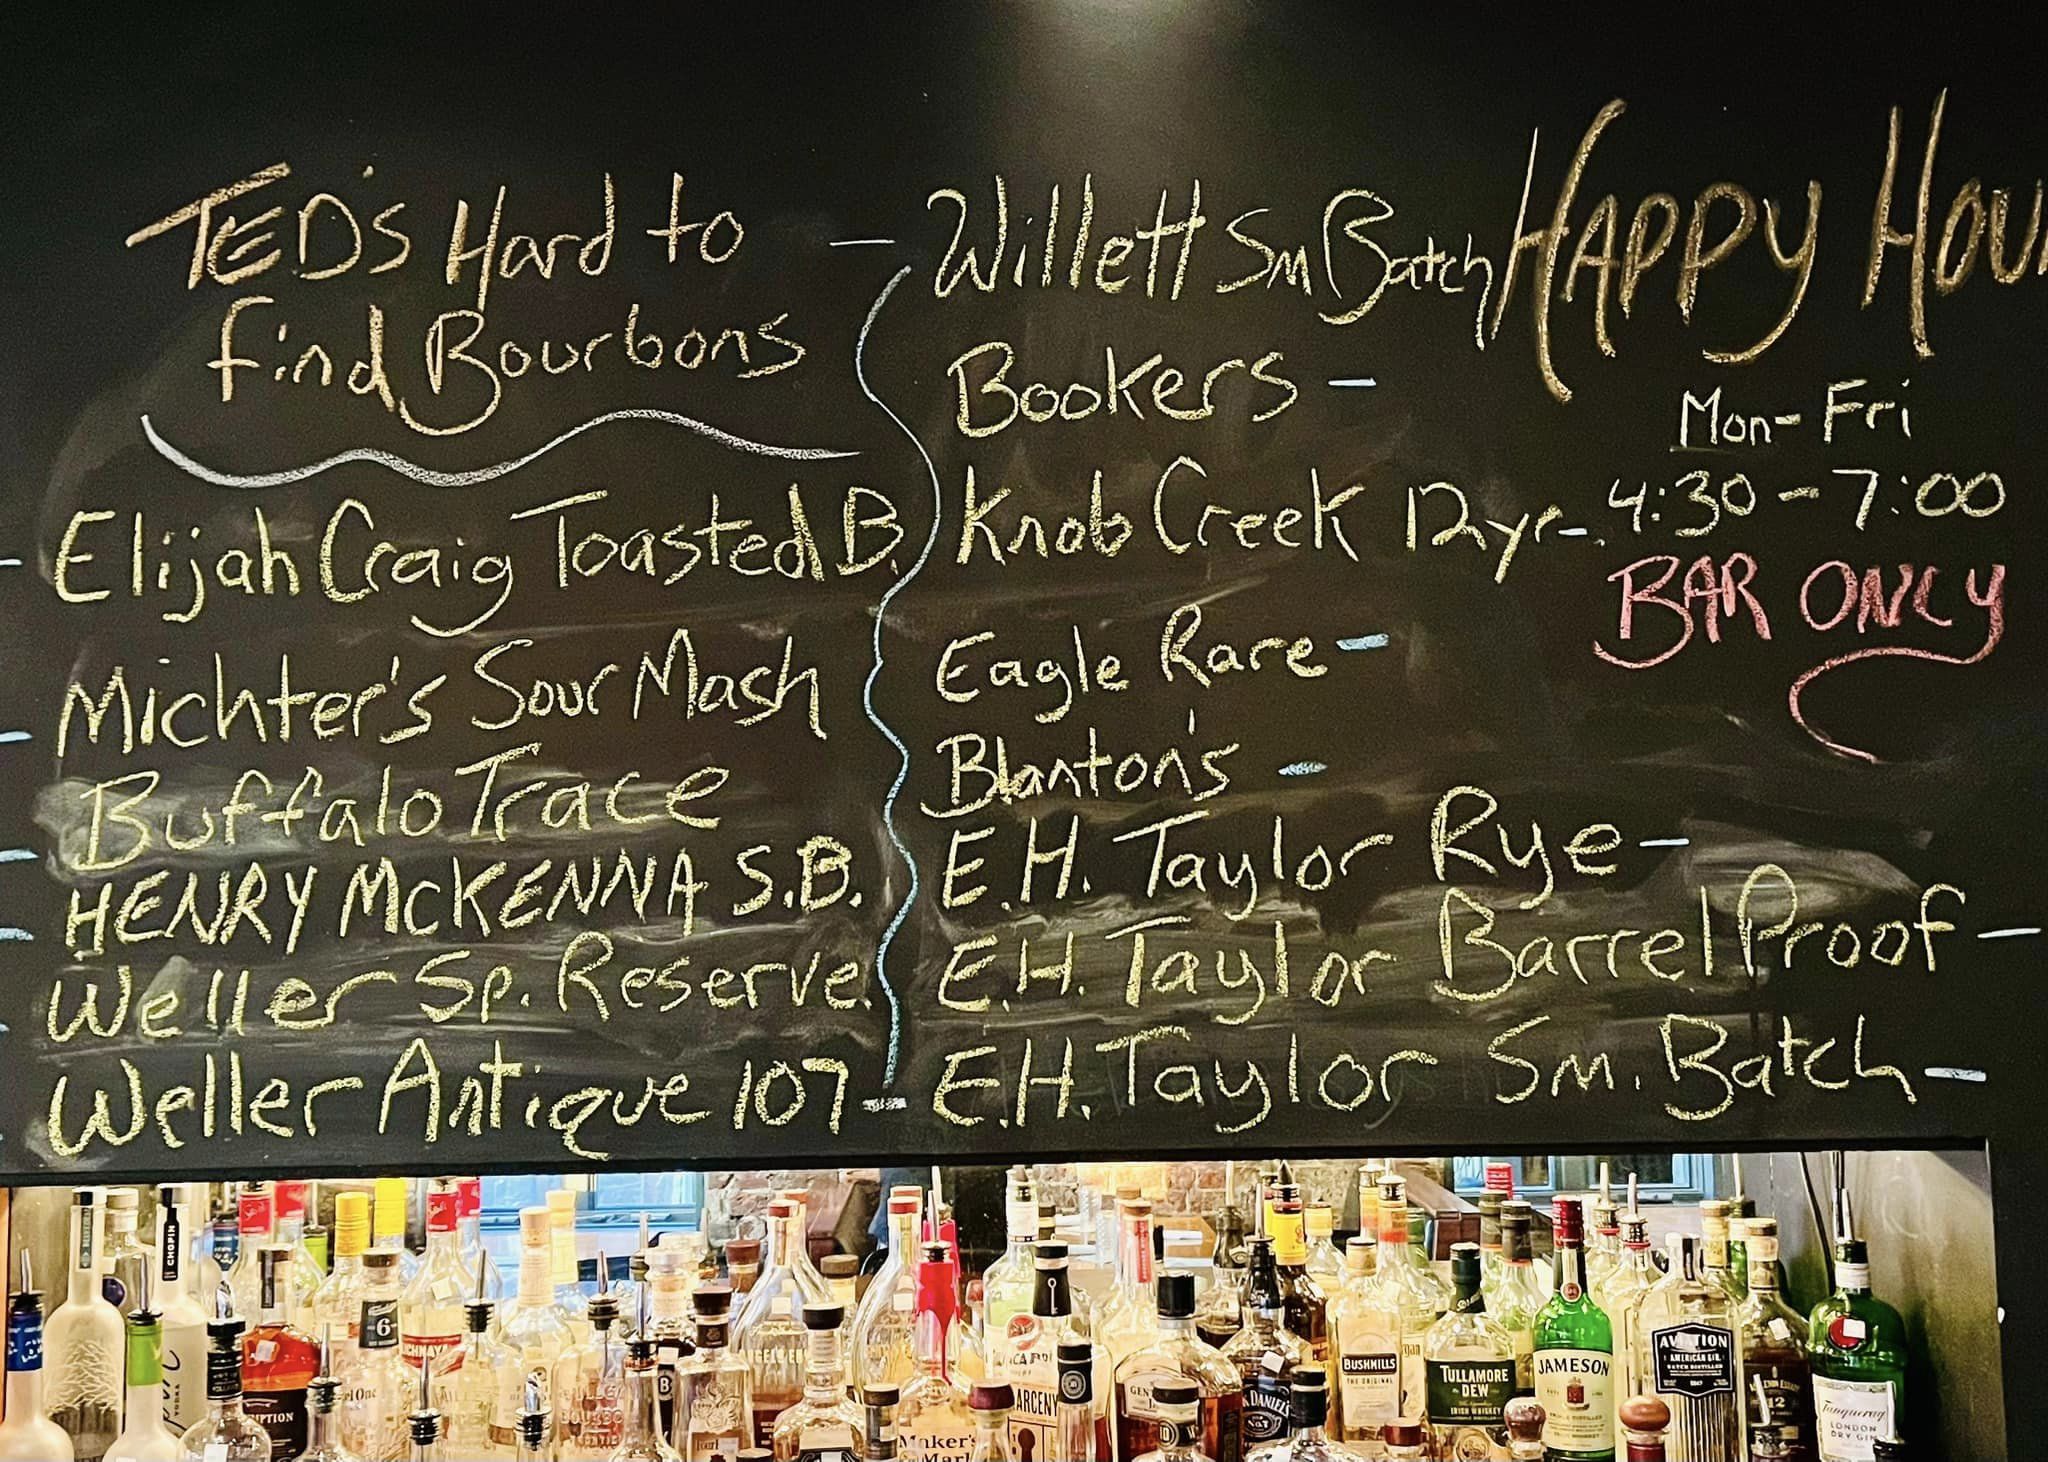 TED'S Hard to
find Bourbons
Elijah Craig Toasted B.
Michter's Sour Mash
Buffalo Trace
HENRY McKENNA S.B.
Weller Sp. Reserve
Weller Antique 107 -
- Willett Sm Batch
Bookers -
Knob Creek 12yr -
Eagle Rare -
Blanton's -
E.H. Taylor Rye -
E.H. Taylor Barrel Proof -
E.H. Taylor Sm. Batch -
HAPPY HOU
Mon-Fri
4:30-7:00
BAR ONLY
CHOPIN
6
B
Maker's
Mark
ARCENY
JACK DANIEL'S
No.7
BUSHMILLS
THE ORIGINAL
TULLAMORE
DEW
IRISH WHISKEY
JAMESON
AVIATION
AMERICAN GIN
12
Tanqueray
LONDON
DRY GIN